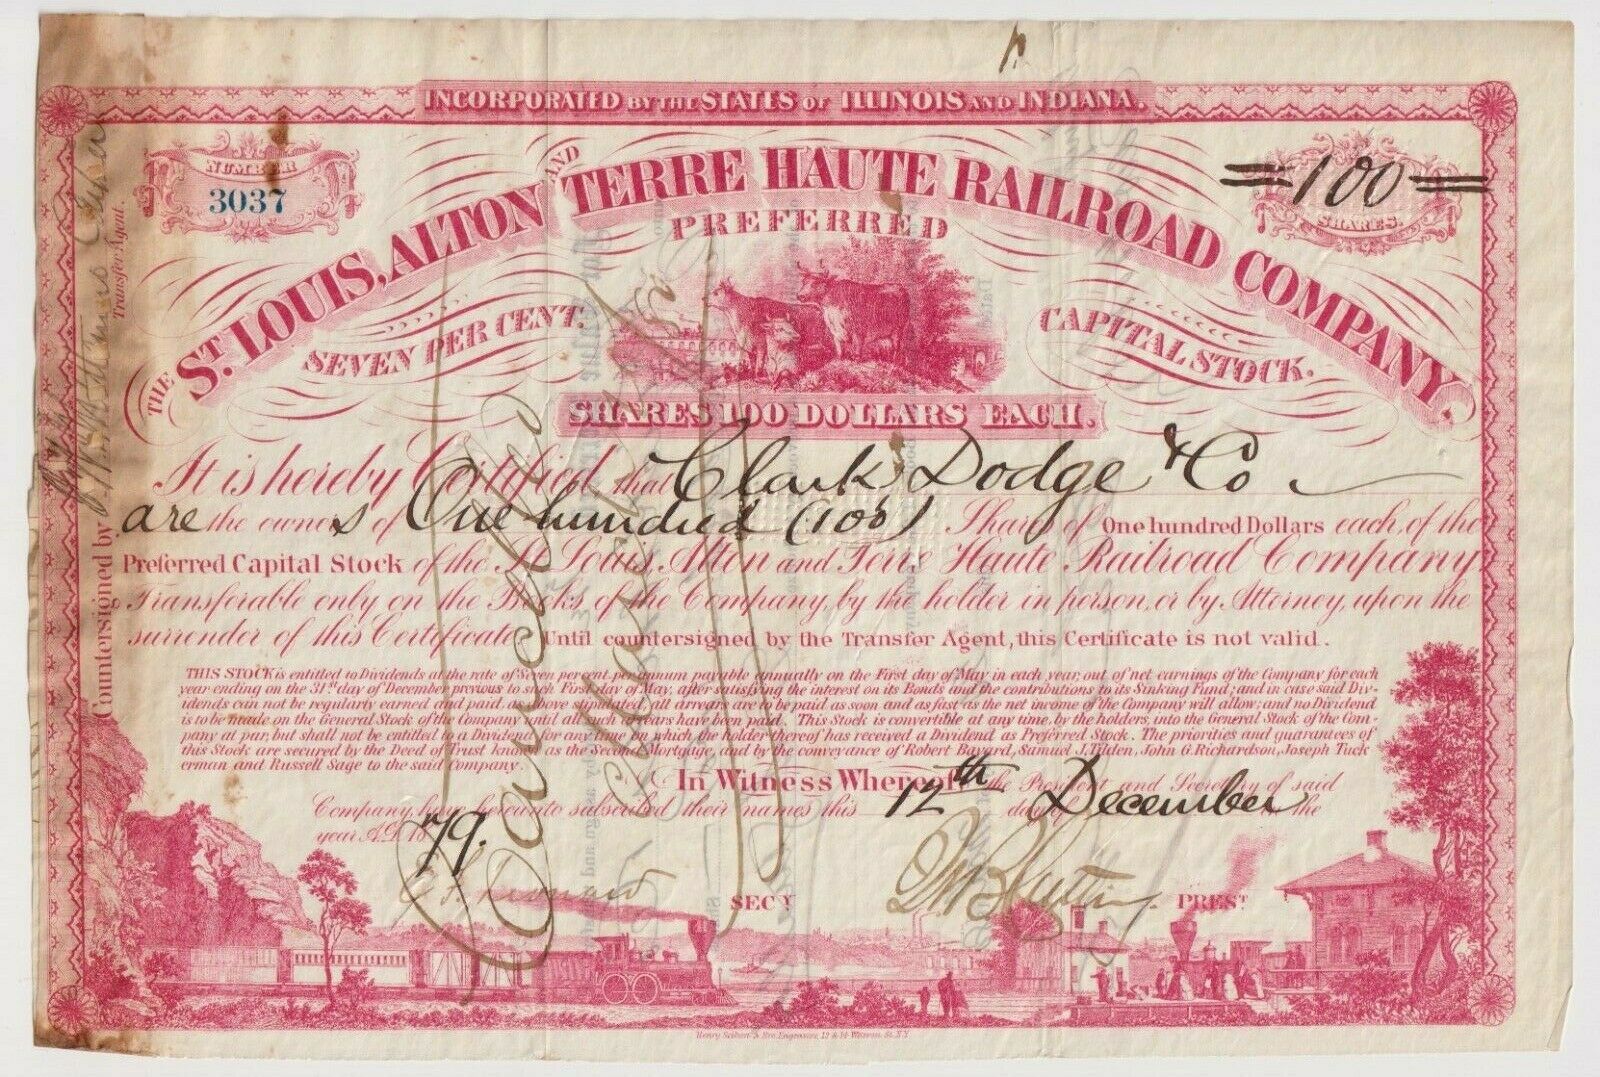 INCORPORATED BY THE STATES OF ILLINOIS AND INDIANA.
NUMBER
3037
=100=
SHARES.
THE ST. LOUIS, ALTON AND TERRE HAUTE RAILROAD COMPANY.
PREFERRED
SEVEN PER CENT.
CAPITAL STOCK.
SHARES 100 DOLLARS EACH.
It is hereby Certified that Clark Dodge & Co
are the owners One hundred (100) Shares of One hundred Dollars each, of the
Preferred Capital Stock of the St. Louis, Alton and Terre Haute Railroad Company
Transferable only on the Books of the Company, by the holder in person, or by Attorney, upon the
surrender of this Certificate. Until countersigned by the Transfer Agent, this Certificate is not valid.
THIS STOCK is entitled to Dividends at the rate of Seven per cent. per annum payable annually on the First day of May, in each year, out of net earnings of the Company for each
year ending on the 31st day of December previous to such First day of May, after satisfying the interest on its Bonds and the contributions to its Sinking Fund; and in case said Div-
idends can not be regularly earned and paid, as above stipulated, all arrears are to be paid as soon and as fast as the net income of the Company will allow; and no Dividend
is to be made on the General Stock of the Company until all such arrears have been paid. This Stock is convertible at any time, by the holders, into the General Stock of the Com-
pany at par, but shall not be entitled to a Dividend for any time for which the holder thereof has received a Dividend as Preferred Stock. The priorities and guarantees of
this Stock are secured by the Deed of Trust known as the Second Mortgage, and by the conveyance of Robert Bayard, Samuel J. Tilden, John G. Richardson, Joseph Tuck
erman and Russell Sage to the said Company.
In Witness Whereof, the President and Secretary of said
Company have hereunto subscribed their names this 12th day of December in the
year A.D. 18 79.
SECY
PREST.
Countersigned by
Transfer Agent.
Cancelled
Henry Seibert & Bro. Engravers, 12 & 14 Warren St. N.Y.